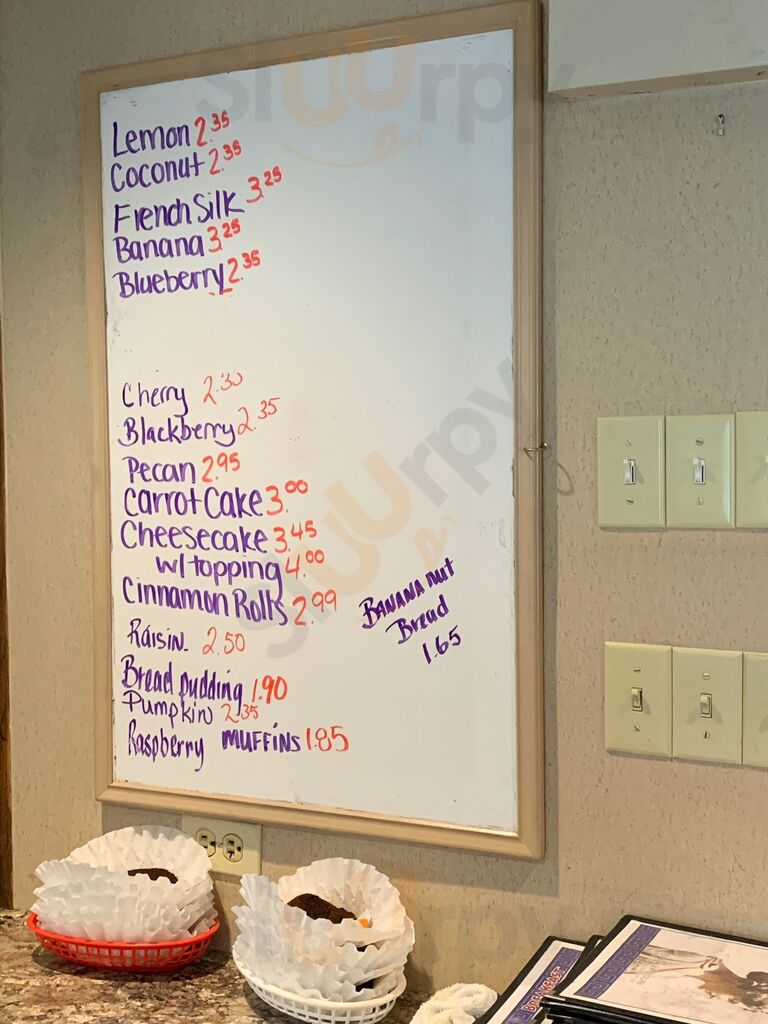 Sluurpy
Lemon 2.35
Coconut 2.35
French Silk 3.25
Banana 3.25
Blueberry 2.35
Cherry 2.30
Blackberry 2.35
Pecan 2.95
Carrot Cake 3.00
Cheesecake 3.45
w/topping 4.00
Cinnamon Rolls 2.99
Raisin 2.50
Bread pudding 1.90
Pumpkin 2.35
Raspberry MUFFINS 1.85
BANANA nut
Bread
1.65
Sluurpy
BREAKFAST